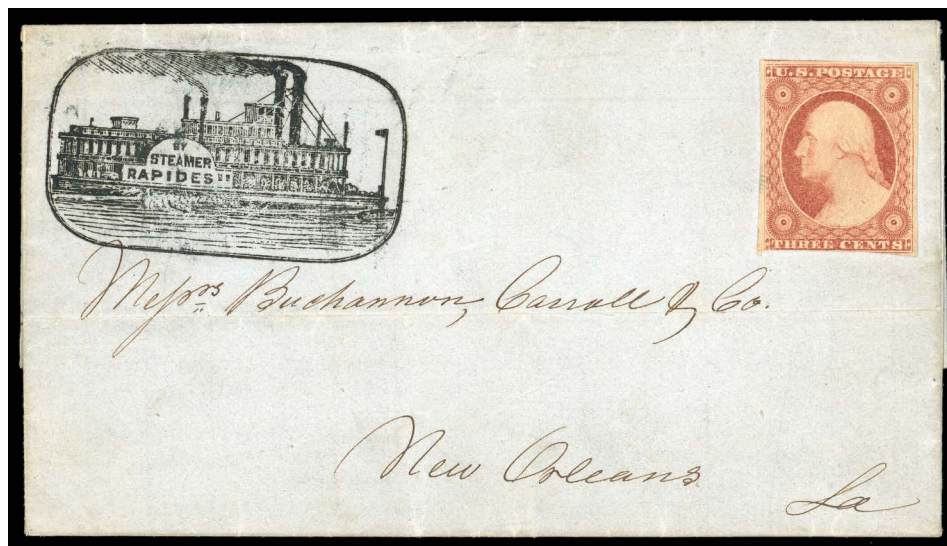 BY
STEAMER
RAPIDES
U.S. POSTAGE
THREE CENTS
Messrs Buchannon, Carroll & Co.
New Orleans
La